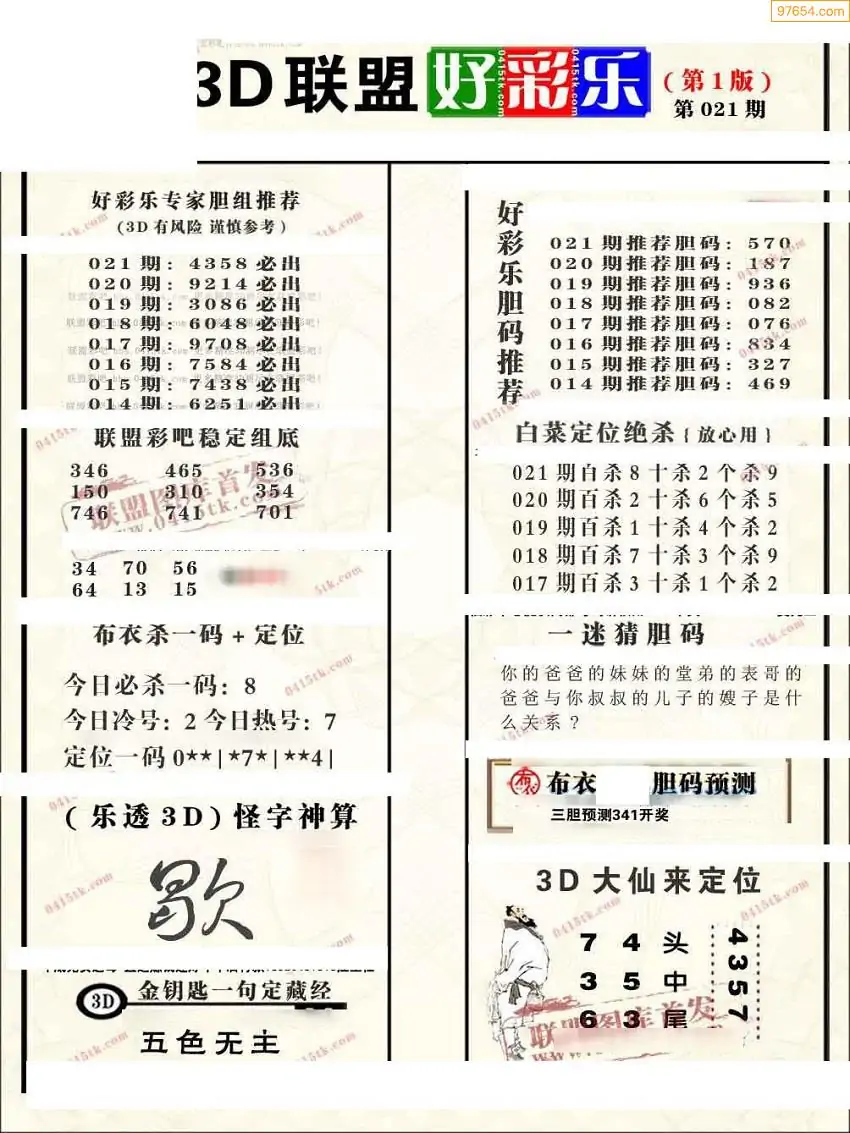 97654.com
3D联盟好彩乐
(第1版)
第021期
好彩乐专家胆组推荐
(3D有风险 谨慎参考)
021期:4358必出
020期:9214必出
019期:3086必出
018期:6048必出
017期:9708必出
016期:7584必出
015期:7438必出
014期:6251必出
联盟彩吧稳定组底
346 465 536
150 310 354
746 741 701
34 70 56
64 13 15
布衣杀一码+定位
今日必杀一码:8
今日冷号:2今日热号:7
定位一码0**|*7*|**4|
(乐透3D)怪字神算
歇
3D 金钥匙一句定藏经
五色无主
好彩乐胆码推荐
021期推荐胆码:570
020期推荐胆码:187
019期推荐胆码:936
018期推荐胆码:082
017期推荐胆码:076
016期推荐胆码:834
015期推荐胆码:327
014期推荐胆码:469
白菜定位绝杀{放心用}
021期白杀8十杀2个杀9
020期百杀2十杀6个杀5
019期百杀1十杀4个杀2
018期百杀7十杀3个杀9
017期百杀3十杀1个杀2
一迷猜胆码
你的爸爸的妹妹的堂弟的表哥的
爸爸与你叔叔的儿子的嫂子是什
么关系?
布衣 胆码预测
三胆预测341开奖
3D大仙来定位
7 4 头
3 5 中
6 3 尾
4357
联盟图库首发
www.0415tk.com
0415tk.com